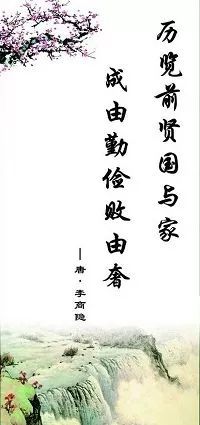 历览前贤国与家
成由勤俭败由奢
—唐·李商隐